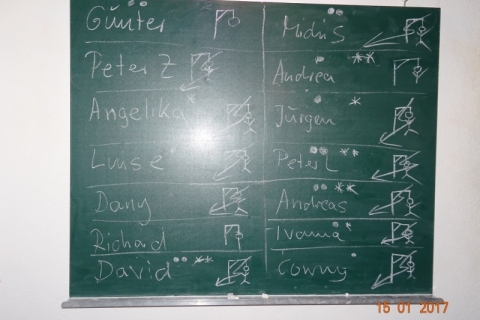 Günter
Peter Z
Angelika *
Luise
Dany
Richard
David ** 
Andrea **
Jürgen *
Peter L **
Andreas **
Ivanna
Conny
15 01 2017